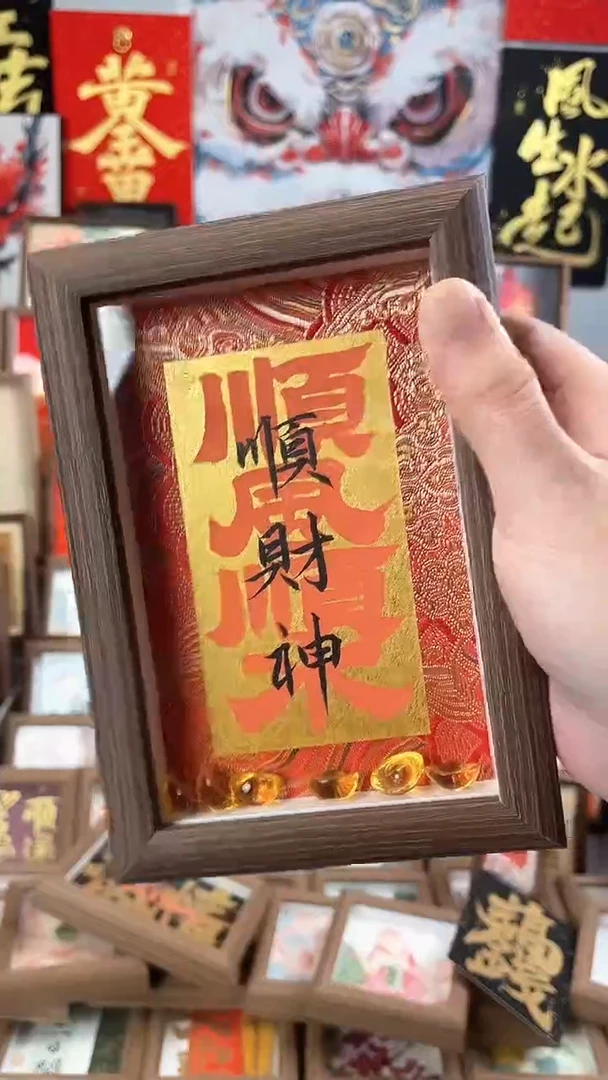 黄金
風生水起
順風順水
順財神
順